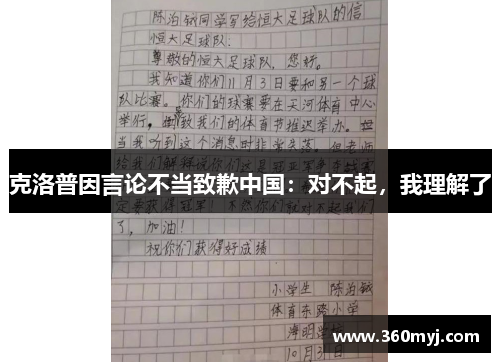 陈泊铖同学写给恒大足球队的信
恒大足球队:
尊敬的恒大足球队,您好。
我知道你们11月3日要和另一个球
队比赛。你们的球赛要在天河体育中心
举行,导致我们的体育节推迟举办。但
当我听到这个消息时非常失落。但老师
给我们解释
克洛普因言论不当致歉中国:对不起,我理解了
定要获得冠军!不然你们就对不起我们
了,加油!
祝你们获得好成绩
小学生 陈泊铖
体育东路小学
海明学校
10月31日
www.360myj.com